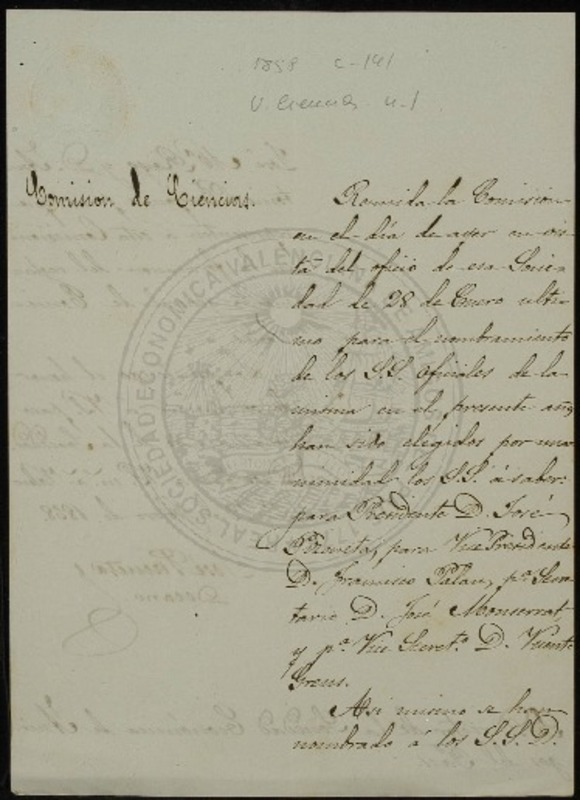 1858 C-141
V. Ciencias n-1
Comision de Ciencias.
Reunida la Comision
en el dia de ayer en vis
ta del oficio de esa Socie
dad de 28 de Enero ulti
mo para el nombramiento
de los S.S. Oficiales de la
misma en el presente año
han sido elegidos por una
nimidad los SS. á saber:
para Presidente D. José
Pizcueta, para Vice Presidente
D. Francisco Palau, pª Secre
tario D. José Monserrat,
y pª Vice Secretº D. Vicente
Greus.
Asi mismo se han
nombrado á los S.S. D.
REAL SOCIEDAD ECONOMICA VALENCIANA DE AMIGOS